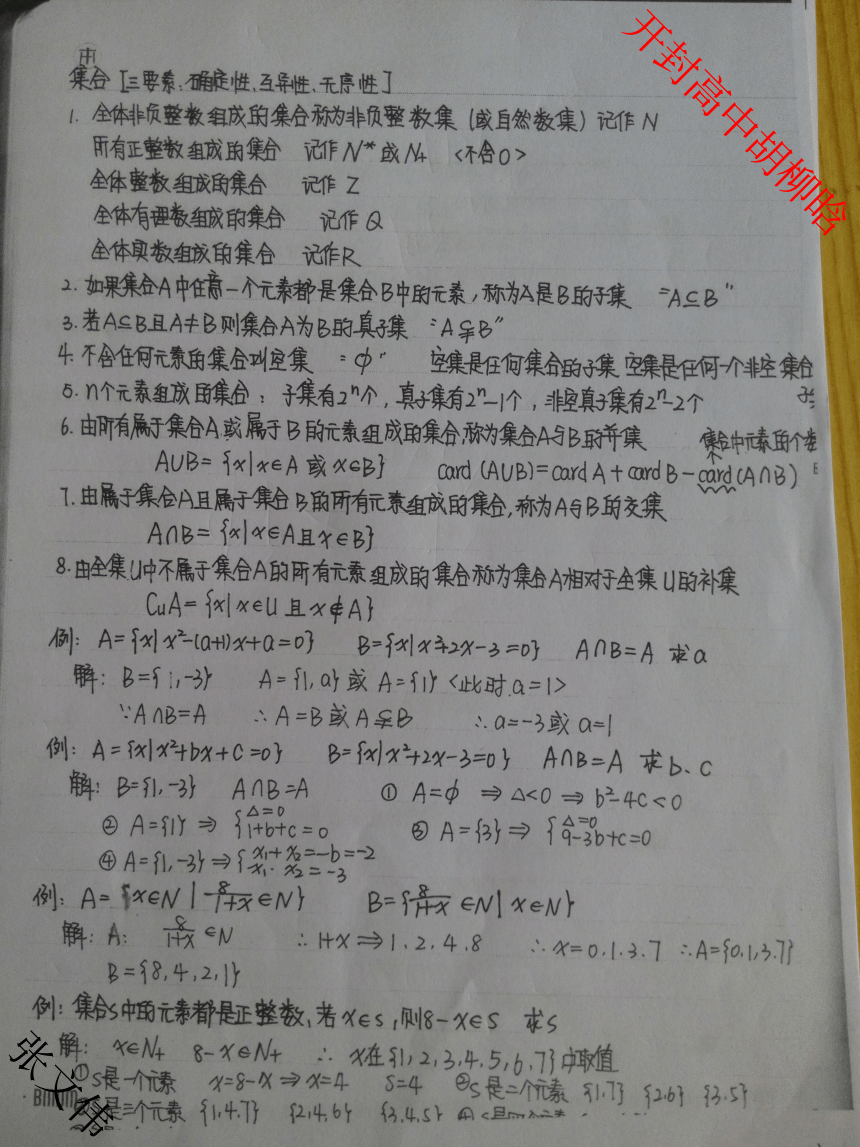 开封高中胡柳晗
集合 [三要素:确定性、互异性、无序性]
1. 全体非负整数组成的集合称为非负整数集 (或自然数集) 记作 N
所有正整数组成的集合 记作 N* 或 N+ <不含0>
全体整数组成的集合 记作 Z
全体有理数组成的集合 记作 Q
全体实数组成的集合 记作R
2. 如果集合A中任意一个元素都是集合B中的元素,称为A是B的子集 "A⊆B"
3. 若A⊆B且A≠B则集合A为B的真子集 "A⫋B"
4. 不含任何元素的集合叫空集 "φ" 空集是任何集合的子集 空集是任何一个非空集合
5. n个元素组成的集合: 子集有2ⁿ个, 真子集有2ⁿ-1个, 非空真子集有2ⁿ-2个
6. 由所有属于集合A或属于B的元素组成的集合,称为集合A与B的并集 集合中元素的个
A∪B={x|x∈A 或 x∈B} card (A∪B)=card A+card B-card(A∩B)
7. 由属于集合A且属于集合B的所有元素组成的集合,称为A与B的交集
A∩B={x|x∈A且x∈B}
8. 由全集U中不属于集合A的所有元素组成的集合称为集合A相对于全集U的补集
CuA={x|x∈U 且 x∉A}
例: A={x|x²-(a+1)x+a=0} B={x|x²+2x-3=0} A∩B=A 求a
解: B={1,-3} A={1,a} 或 A={1} <此时.a=1>
∵A∩B=A ∴A=B 或 A⫋B ∴a=-3或 a=1
例: A={x|x²+bx+c=0} B={x|x²+2x-3=0} A∩B=A 求b、c
解: B={1,-3} A∩B=A ① A=φ ⇒ △<0 ⇒ b²-4c<0
② A={1} ⇒ {△=0 1+b+c=0 ③ A={3} ⇒ {△=0 9-3b+c=0
④ A={1,-3} ⇒ {x₁+x₂=-b=-2 x₁·x₂=-3
例: A={x∈N | 8/1+x ∈N} B={8/1+x ∈N | x∈N}
解: A: 8/1+x ∈N ∴1+x ⇒ 1、2、4、8 ∴x=0.1.3.7 ∴A={0,1,3.7}
B={8,4,2,1}
例: 集合S中的元素都是正整数,若 x∈s,则8-x∈S 求S
解: x∈N+ 8-x∈N+ ∴ x在{1,2,3,4,5,6,7}中取值
①S是一个元素 x=8-x⇒x=4 S=4 ②S是二个元素 {1.7} {2.6} {3.5}
是三个元素 {1,4.7} {2,4,6} {3,4,5}
张文伟